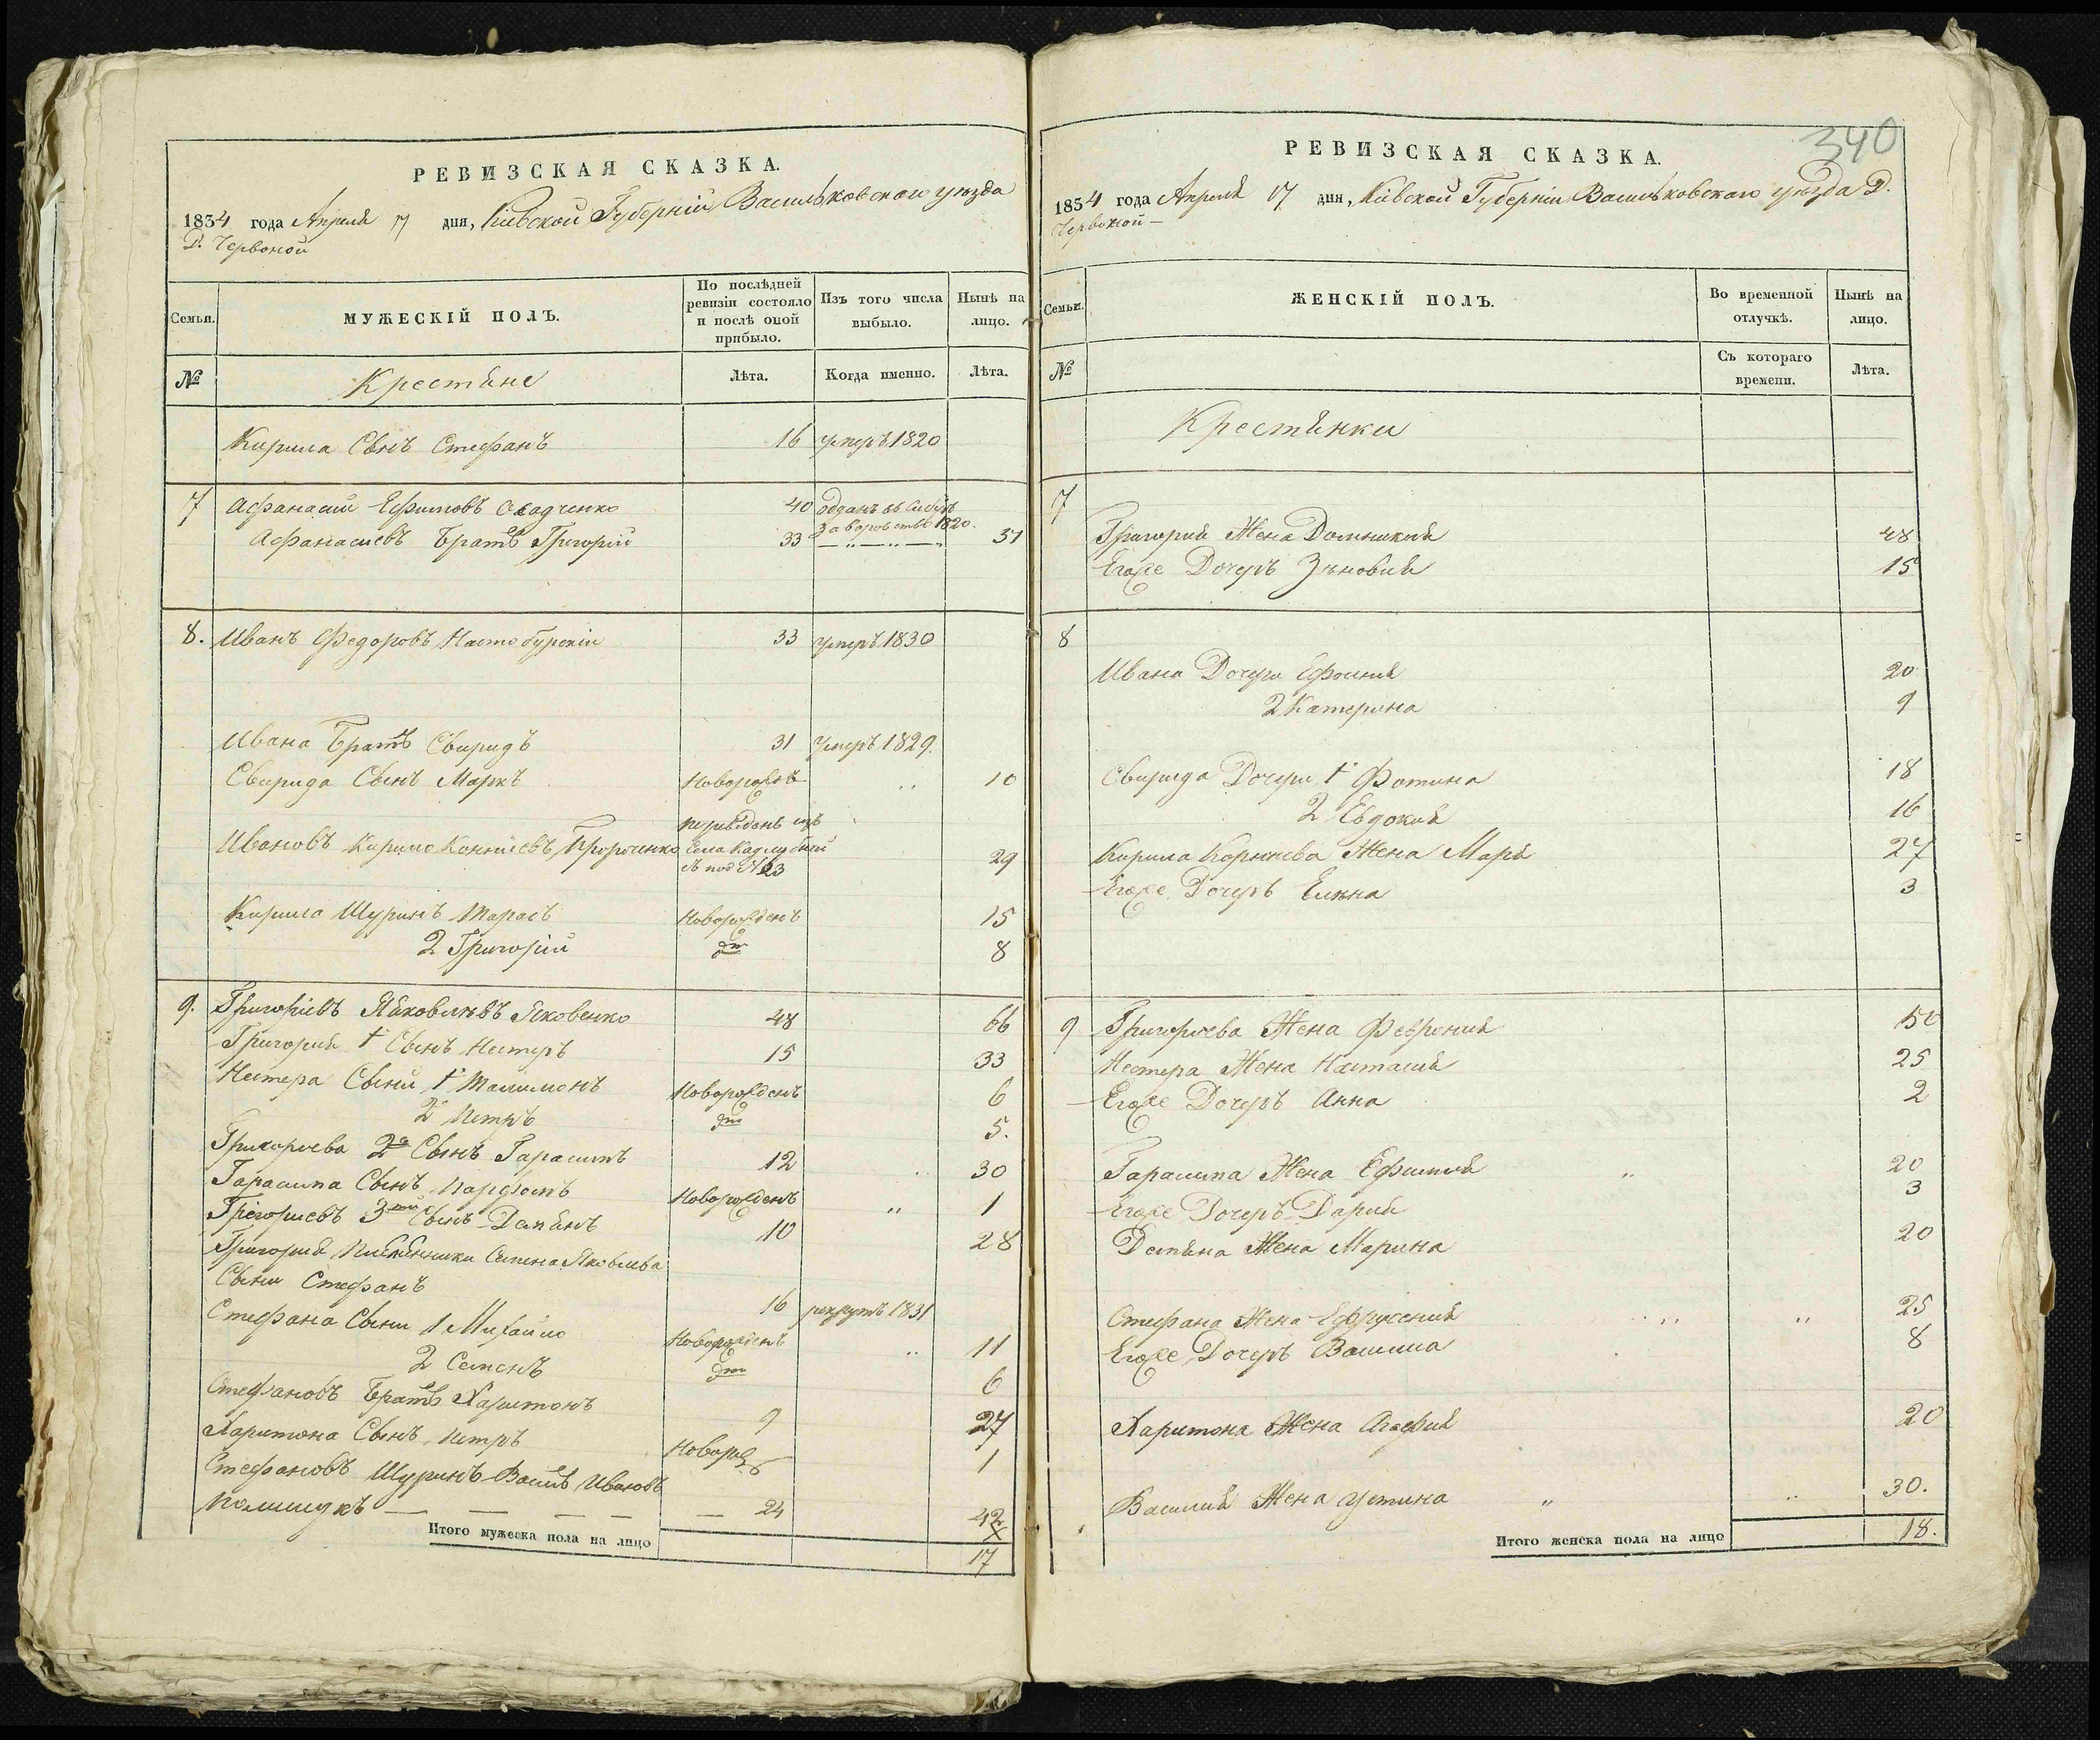 РЕВИЗСКАЯ СКАЗКА.
1834 года Апреля 17 дня, Киевской Губернии Васильковского уезда
Д. Червоной
Семьи.
МУЖЕСКІЙ ПОЛЪ.
По послѣдней ревизіи состояло и послѣ оной прибыло.
Изъ того числа выбыло.
Нынѣ на лицо.
№
Крестяне
Лѣта.
Когда именно.
Лѣта.
Кирила Сынъ Стефанъ 16 умеръ 1820
7 Афанасий Ефимовъ 40 отданъ въ
за воровство 1820.
Афанасиевъ Братъ Григорий 33 51
8. Иванъ Федоровъ 33 умеръ 1830
Ивана Братъ Свиридъ 31 умеръ 1829.
Свирида Сынъ Маркъ Новорожд 10
переведенъ изъ
Ивановъ Кирило села 29
под №23
Кирила Шуринъ Тарасъ Новорожденъ 15
2 Григорій дт 8
9. Григоріевъ Яковенко 48 66
Григория 1 Сынъ Нестеръ 15 33
Нестера Сыни 1 Новорожденъ 6
2 Петръ дт 5.
Григориева 2й Сынъ Гарасимъ 12 30
Гарасима Сынъ Парфенъ Новорожденъ 1
Григориевъ 3й Сынъ Демянъ 10 28
Григория Племянники Семена Яковлева
Сыни Стефанъ 16 рекрутъ 1831
Стефана Сыни 1 Михайло Новорожденъ 11
2 Семенъ дт 6
Стефановъ Братъ Харитонъ 9 27
Харитона Сынъ Петръ Новорож 1
Стефановъ Шуринъ Васил Ивановъ
24 42
Итого мужеска пола на лицо 17
340
РЕВИЗСКАЯ СКАЗКА.
1834 года Апреля 17 дня, Киевской Губернии Васильковскаго уезда Д.
Червоной
Семьи.
ЖЕНСКІЙ ПОЛЪ.
Во временной отлучкѣ.
Нынѣ на лицо.
№
Съ котораго времени.
Лѣта.
Крестянки
7
Григория Жена Домникия 48
Егоже Дочерь Зѣновия 15
8
Ивана Дочери Ефросиния 20
2 Катерина 9
Свирида Дочери 1 Фотина 18
2 Евдокия 16
Кирила Жена Маря 27
Егоже Дочерь Елѣна 3
9 Григориева Жена Феврония 50
Нестера Жена Настасия 25
Егоже Дочерь Анна 2
Гарасима Жена Ефимия 20
Егоже Дочерь Дария 3
Демяна Жена Марина 20
Стефана Жена 25
Егоже Дочерь Василиса 8
Харитона Жена Агафия 20
Василия Жена Устина 30.
Итого женска пола на лицо 18.